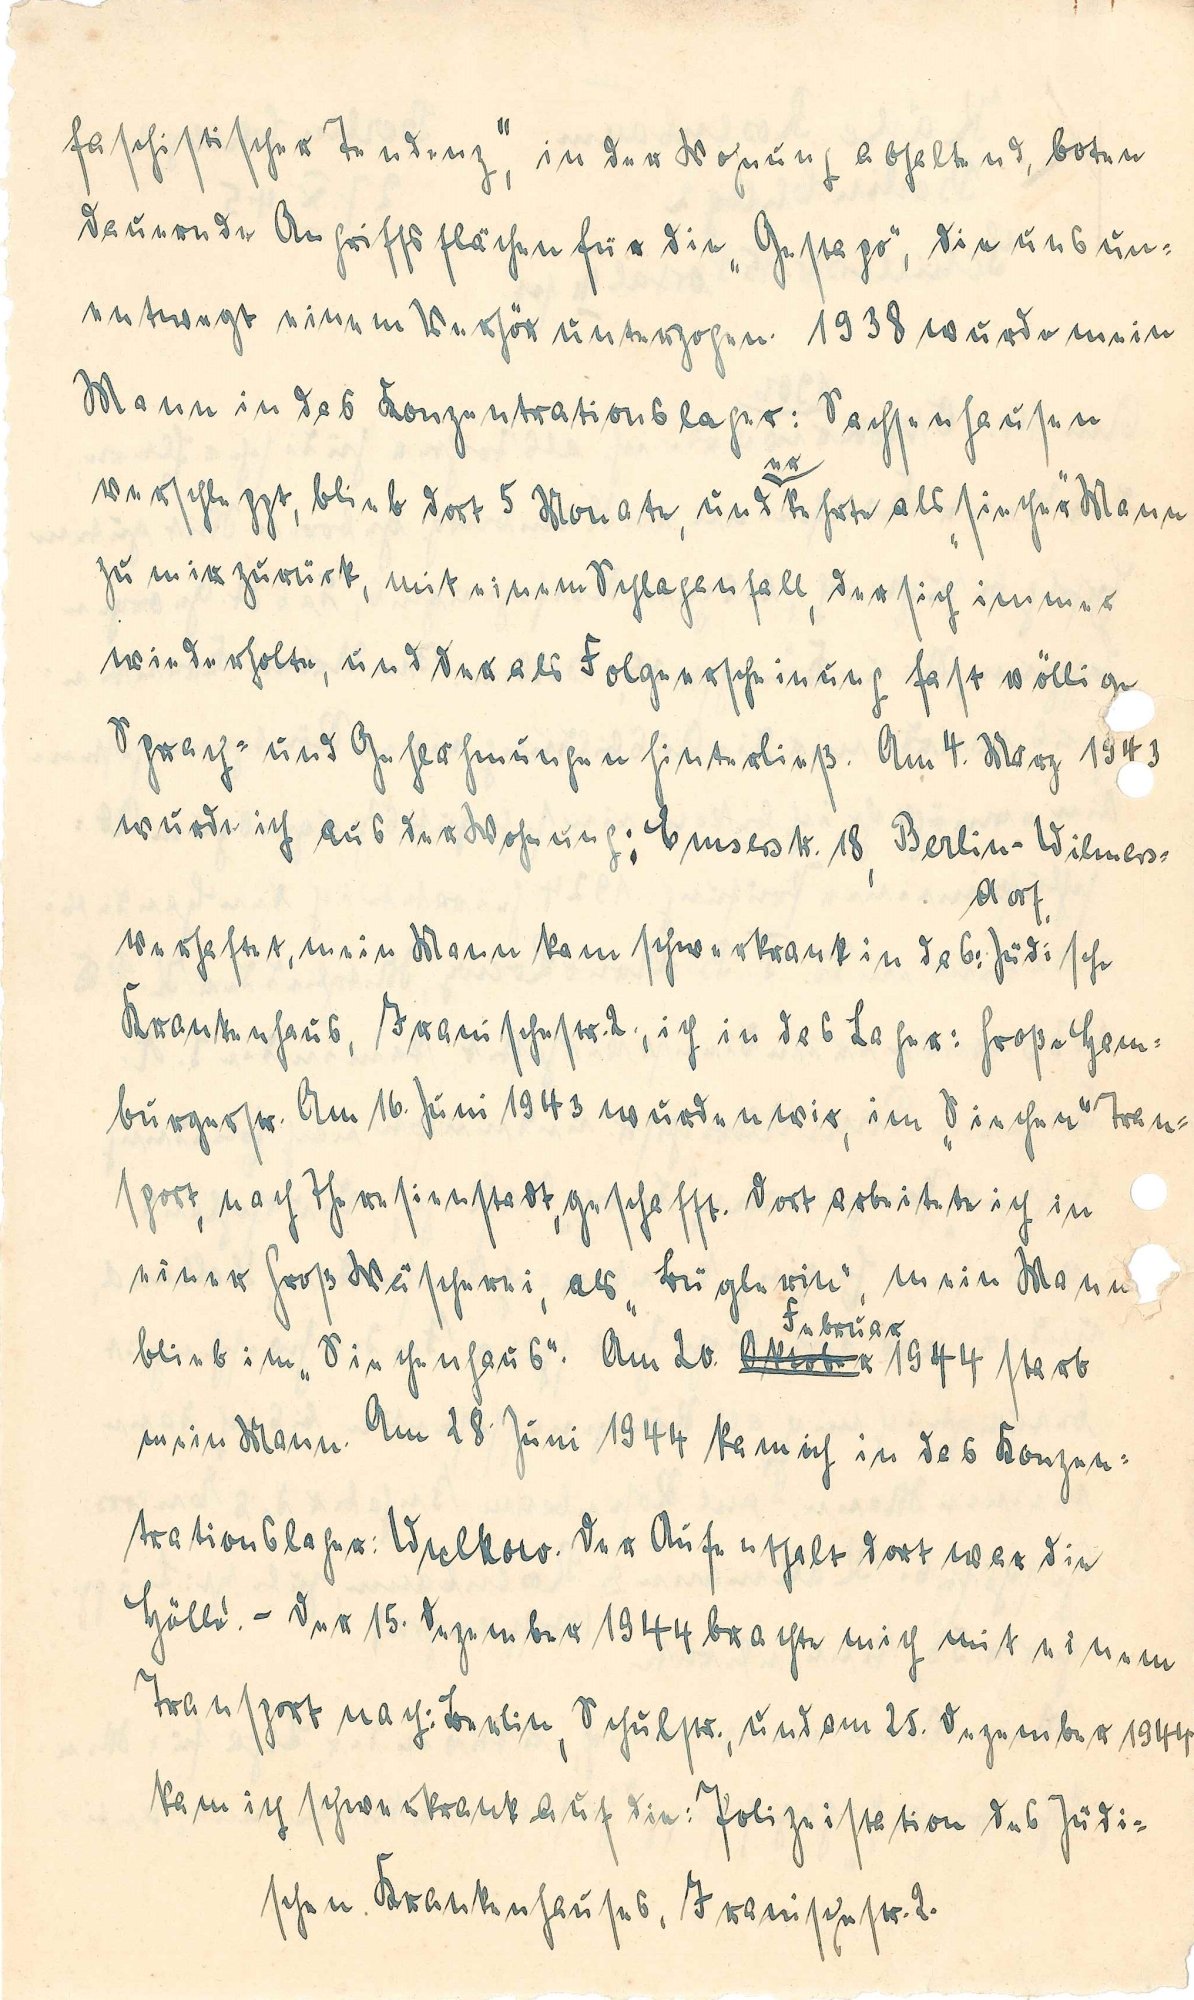 faschistischer Tendenz", in der Wohnung abhaltend, boten
dauernde Angriffsflächen für die „Gestapo", die uns un-
entwegt einem Verhör unterzogen. 1938 wurde mein
Mann in das Konzentrationslager: Sachsenhausen
verschleppt, blieb dort 5 Monate, und er kehrte als „siecher" Mann
zu mir zurück, mit einem Schlaganfall, der sich immer
wiederholte, und der als Folgeerscheinung fast völlige
Sprach- und Gehlähmungen hinterließ. Am 4. März 1943
wurde ich aus der Wohnung: Emserstr. 18, Berlin-Wilmers-
dorf,
verhaftet, mein Mann kam schwerkrank in das: Jüdische
Krankenhaus, Iranischestr. 2., ich in das Lager: Große Ham-
burgerstr. Am 16. Juni 1943 wurden wir, im „Siechen" Tran-
sport, nach Theresienstadt, geschafft. Dort arbeitete ich in
einer Groß Wäscherei, als „Büglerin", mein Mann
blieb im „Siechenhaus". Am 20. Oktober Februar 1944 starb
mein Mann. Am 28. Juni 1944 kam ich in das Konzen-
trationslager: Wulkow. Der Aufenthalt dort war die
Hölle. - Der 15. Dezember 1944 brachte mich mit einem
Transport nach: Berlin, Schulstr., und am 25. Dezember 1944
kam ich schwerkrank auf die: Polizeistation des Jüdi-
schen Krankenhauses, Iranischestr. 2.